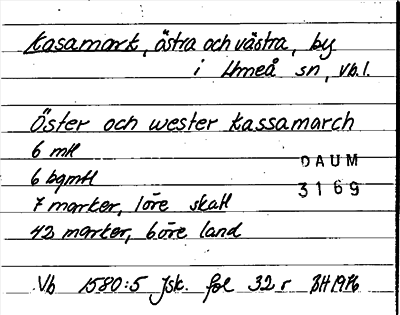 Kasamark, östra och västra, by
i Umeå sn, Vb.l.
Öster och wester Kassamarch
6 mtl
6 bgmtl
DAUM
7 marker, 1 öre skatt
3169
42 marker, 6 öre land
Vb 1580:5 Jsk. fol 32 r BH 1976